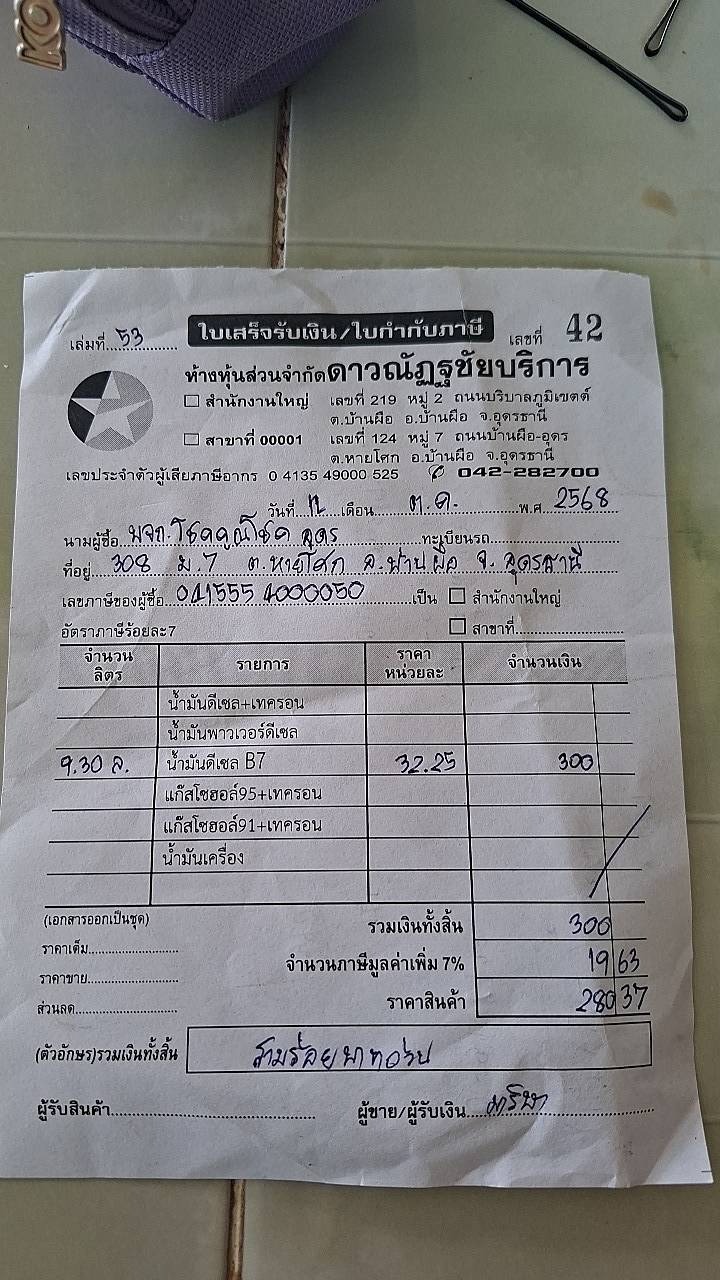 KO
เล่มที่ 53 ใบเสร็จรับเงิน/ใบกำกับภาษี เลขที่ 42
ห้างหุ้นส่วนจำกัดดาวณัฏฐชัยบริการ
สำนักงานใหญ่ เลขที่ 219 หมู่ 2 ถนนบริบาลภูมิเขตต์
ต.บ้านผือ อ.บ้านผือ จ.อุดรธานี
สาขาที่ 00001 เลขที่ 124 หมู่ 7 ถนนบ้านผือ-อุดร
ต.หายโศก อ.บ้านผือ จ.อุดรธานี
เลขประจำตัวผู้เสียภาษีอากร 0 4135 49000 525 042-282700
วันที่ 12 เดือน ต.ค. พ.ศ. 2568
นามผู้ซื้อ หจก.โชคคูณโชค อุดร ทะเบียนรถ
ที่อยู่ 308 ม.7 ต.หายโศก อ.บ้านผือ จ.อุดรธานี
เลขภาษีของผู้ซื้อ 0415554000050 เป็น สำนักงานใหญ่
อัตราภาษีร้อยละ7 สาขาที่
จำนวนลิตร รายการ ราคาหน่วยละ จำนวนเงิน
น้ำมันดีเซล+เทครอน
น้ำมันพาวเวอร์ดีเซล
9.30 ล. น้ำมันดีเซล B7 32.25 300
แก๊สโซฮอล์95+เทครอน
แก๊สโซฮอล์91+เทครอน
น้ำมันเครื่อง
(เอกสารออกเป็นชุด) รวมเงินทั้งสิ้น 300
ราคาเต็ม
จำนวนภาษีมูลค่าเพิ่ม 7% 19 63
ราคาขาย
ส่วนลด ราคาสินค้า 280 37
(ตัวอักษร)รวมเงินทั้งสิ้น สามร้อยบาทถ้วน
ผู้รับสินค้า ผู้ขาย/ผู้รับเงิน